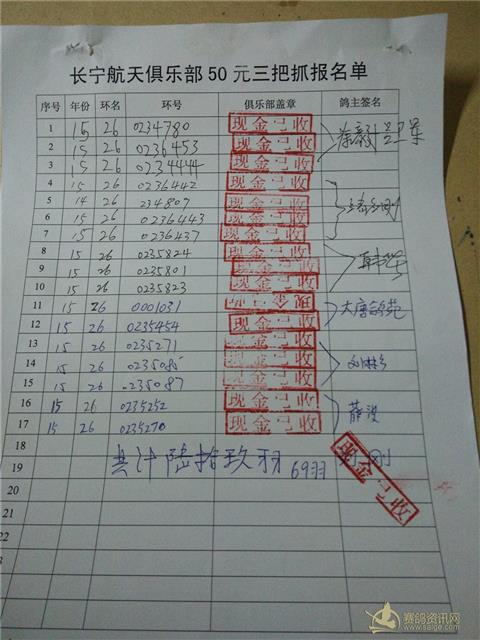 长宁航天俱乐部50元三把抓报名单
序号 年份 环名 环号 俱乐部盖章 鸽主签名
1 15 26 0234780 现金已收
2 15 26 0236453 现金已收
3 15 26 0234444 现金已收
4 15 26 0236442 现金已收
5 14 26 234807 现金已收
6 15 26 0236443 现金已收
7 15 26 0236437 现金已收
8 15 26 0235824 现金已收
9 15 26 0235801 现金已收
10 15 26 0235823 现金已收
11 15 26 0001031
12 15 26 0235454 现金已收 大唐鸽苑
13 15 26 0235271 现金已收
14 15 26 0235085 现金已收
15 15 26 0235087 现金已收
16 15 26 0235252 现金已收 薛波
17 15 26 0235270 现金已收
18
19 共计陆拾玖羽 69羽 刚 现金已收
20
21
22
赛鸽资讯网
www.saige.com